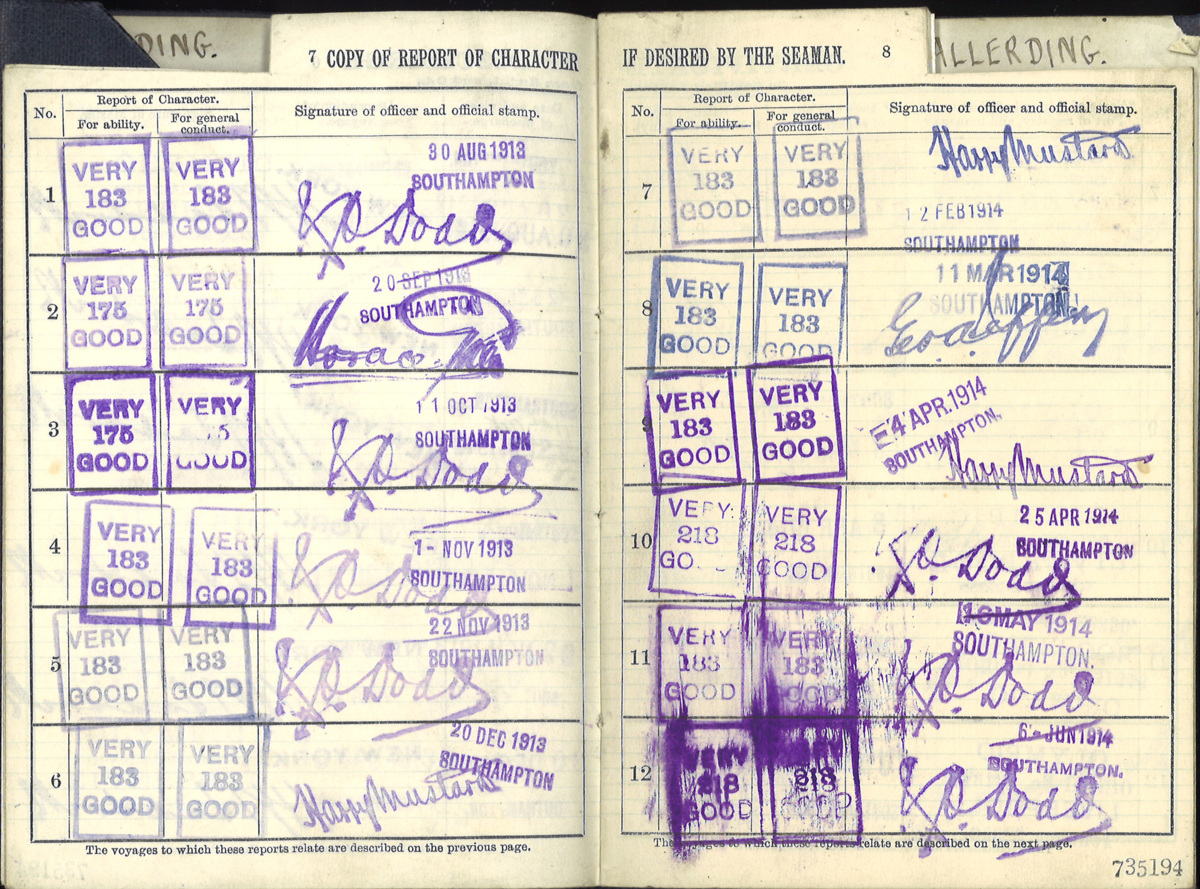 DING.
7 COPY OF REPORT OF CHARACTER
No.
Report of Character.
For ability.
For general conduct.
Signature of officer and official stamp.
1
VERY 183 GOOD
VERY 183 GOOD
30 AUG 1913
SOUTHAMPTON
2
VERY 175 GOOD
VERY 175 GOOD
20 SEP 1913
SOUTHAMPTON
Horace
3
VERY 175 GOOD
VERY GOOD
11 OCT 1913
SOUTHAMPTON
4
VERY 183 GOOD
VERY 183 GOOD
1- NOV 1913
SOUTHAMPTON
5
VERY 183 GOOD
VERY 183 GOOD
22 NOV 1913
SOUTHAMPTON
6
VERY 183 GOOD
VERY 183 GOOD
20 DEC 1913
SOUTHAMPTON
Harry Mustard
The voyages to which these reports relate are described on the previous page.
IF DESIRED BY THE SEAMAN. 8
ALLERDING.
No.
Report of Character.
For ability.
For general conduct.
Signature of officer and official stamp.
7
VERY 183 GOOD
VERY 183 GOOD
Harry Mustard
12 FEB 1914
SOUTHAMPTON
8
VERY 183 GOOD
VERY 183 GOOD
11 MAR 1914
SOUTHAMPTON
9
VERY 183 GOOD
VERY 183 GOOD
4 APR. 1914
SOUTHAMPTON.
Harry Mustard
10
VERY 218 GO
VERY 218 GOOD
25 APR 1914
SOUTHAMPTON
11
VERY 183 GOOD
VERY 183 GOOD
16 MAY 1914
SOUTHAMPTON.
12
VERY 218 GOOD
VERY 218 GOOD
6- JUN 1914
SOUTHAMPTON.
The voyages to which these reports relate are described on the next page.
735194